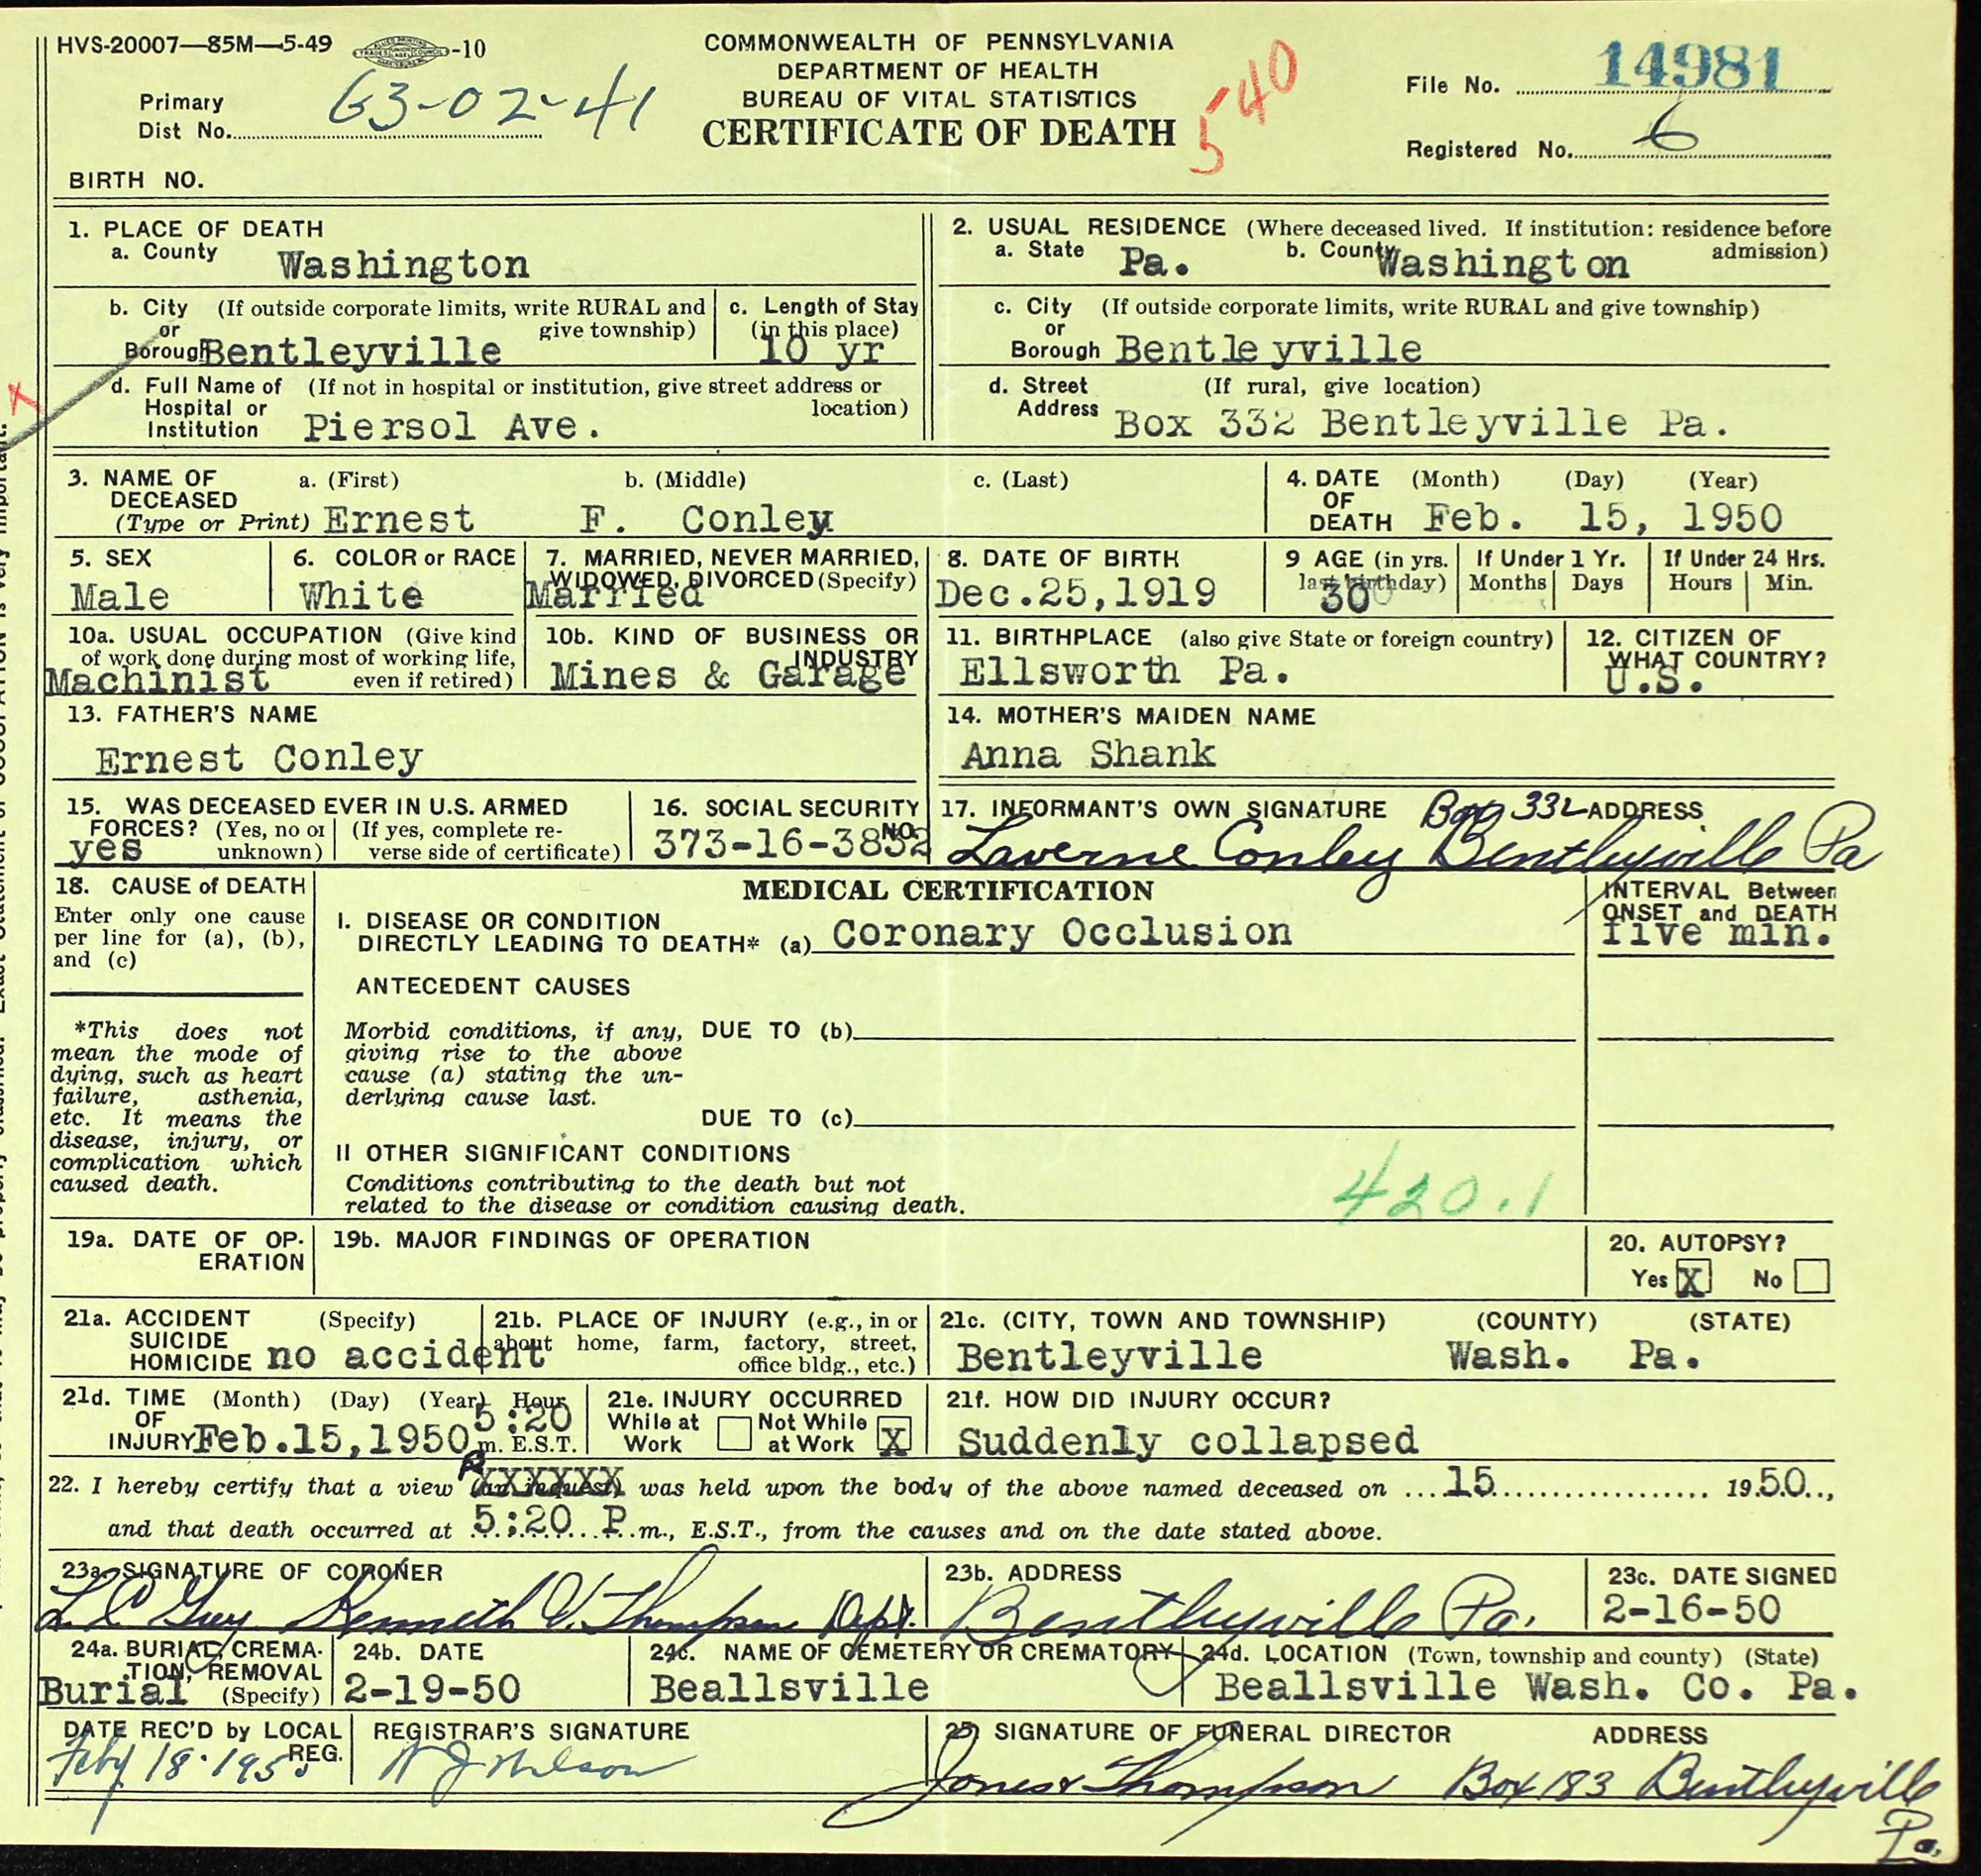 HVS-20007—85M—5-49 -10
COMMONWEALTH OF PENNSYLVANIA
DEPARTMENT OF HEALTH
BUREAU OF VITAL STATISTICS
CERTIFICATE OF DEATH
540
File No. 14981
Primary
Dist No. 63-02-41
Registered No. 6
BIRTH NO.
1. PLACE OF DEATH
a. County Washington
2. USUAL RESIDENCE (Where deceased lived. If institution: residence before admission)
a. State Pa. b. County Washington
b. City (If outside corporate limits, write RURAL and
or give township)
Borough Bentleyville
c. Length of Stay
(in this place)
10 yr
c. City (If outside corporate limits, write RURAL and give township)
or
Borough Bentleyville
d. Full Name of (If not in hospital or institution, give street address or
Hospital or location)
Institution Piersol Ave.
d. Street (If rural, give location)
Address Box 332 Bentleyville Pa.
3. NAME OF a. (First) b. (Middle) c. (Last)
DECEASED
(Type or Print) Ernest F. Conley
4. DATE (Month) (Day) (Year)
OF
DEATH Feb. 15, 1950
5. SEX
Male
6. COLOR or RACE
White
7. MARRIED, NEVER MARRIED,
WIDOWED, DIVORCED (Specify)
Married
8. DATE OF BIRTH
Dec.25,1919
9 AGE (in yrs.
last birthday)
30
If Under 1 Yr.
Months Days
If Under 24 Hrs.
Hours Min.
10a. USUAL OCCUPATION (Give kind
of work done during most of working life,
even if retired)
Machinist
10b. KIND OF BUSINESS OR
INDUSTRY
Mines & Garage
11. BIRTHPLACE (also give State or foreign country)
Ellsworth Pa.
12. CITIZEN OF
WHAT COUNTRY?
U.S.
13. FATHER'S NAME
Ernest Conley
14. MOTHER'S MAIDEN NAME
Anna Shank
15. WAS DECEASED EVER IN U.S. ARMED
FORCES? (Yes, no or (If yes, complete re-
yes unknown) verse side of certificate)
16. SOCIAL SECURITY
NO.
373-16-3832
17. INFORMANT'S OWN SIGNATURE Box 332 ADDRESS
Laverne Conley Bentleyville Pa
18. CAUSE of DEATH
Enter only one cause
per line for (a), (b),
and (c)
*This does not
mean the mode of
dying, such as heart
failure, asthenia,
etc. It means the
disease, injury, or
complication which
caused death.
MEDICAL CERTIFICATION
I. DISEASE OR CONDITION
DIRECTLY LEADING TO DEATH* (a) Coronary Occlusion
INTERVAL Between
ONSET and DEATH
five min.
ANTECEDENT CAUSES
Morbid conditions, if any, DUE TO (b)
giving rise to the above
cause (a) stating the un-
derlying cause last.
DUE TO (c)
II OTHER SIGNIFICANT CONDITIONS
Conditions contributing to the death but not
related to the disease or condition causing death.
420.1
19a. DATE OF OP-
ERATION
19b. MAJOR FINDINGS OF OPERATION
20. AUTOPSY?
Yes X No
21a. ACCIDENT (Specify)
SUICIDE
HOMICIDE no accident
21b. PLACE OF INJURY (e.g., in or
about home, farm, factory, street,
office bldg., etc.)
21c. (CITY, TOWN AND TOWNSHIP) (COUNTY) (STATE)
Bentleyville Wash. Pa.
21d. TIME (Month) (Day) (Year) Hour
OF 5:20
INJURY Feb.15,1950 m. E.S.T.
21e. INJURY OCCURRED
While at Not While
Work at Work X
21f. HOW DID INJURY OCCUR?
Suddenly collapsed
22. I hereby certify that a view XXXXXX was held upon the body of the above named deceased on 15 1950,
and that death occurred at 5:20 P.m., E.S.T., from the causes and on the date stated above.
23a. SIGNATURE OF CORONER
Kenneth V. Thompson Dept.
23b. ADDRESS
Bentleyville Pa.
23c. DATE SIGNED
2-16-50
24a. BURIAL, CREMA-
TION, REMOVAL
(Specify)
Burial
24b. DATE
2-19-50
24c. NAME OF CEMETERY OR CREMATORY
Beallsville
24d. LOCATION (Town, township and county) (State)
Beallsville Wash. Co. Pa.
DATE REC'D by LOCAL
REG.
REGISTRAR'S SIGNATURE
25. SIGNATURE OF FUNERAL DIRECTOR ADDRESS
Jones & Thompson Box 183 Bentleyville
Pa.